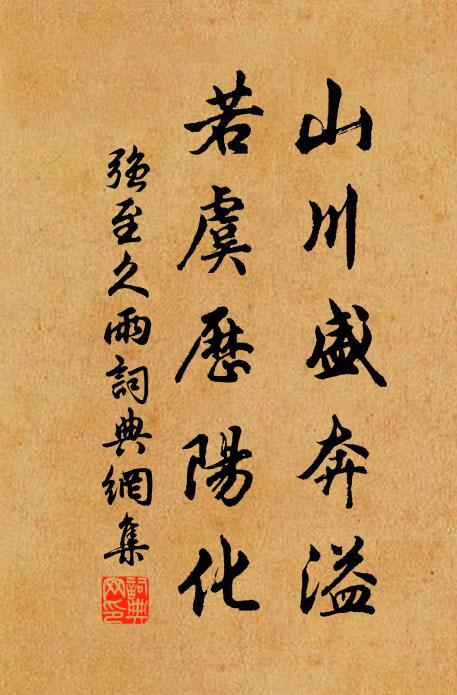 山川盛奔溢
若虞歷陽化
强至久雨詞典網集
詞典網印